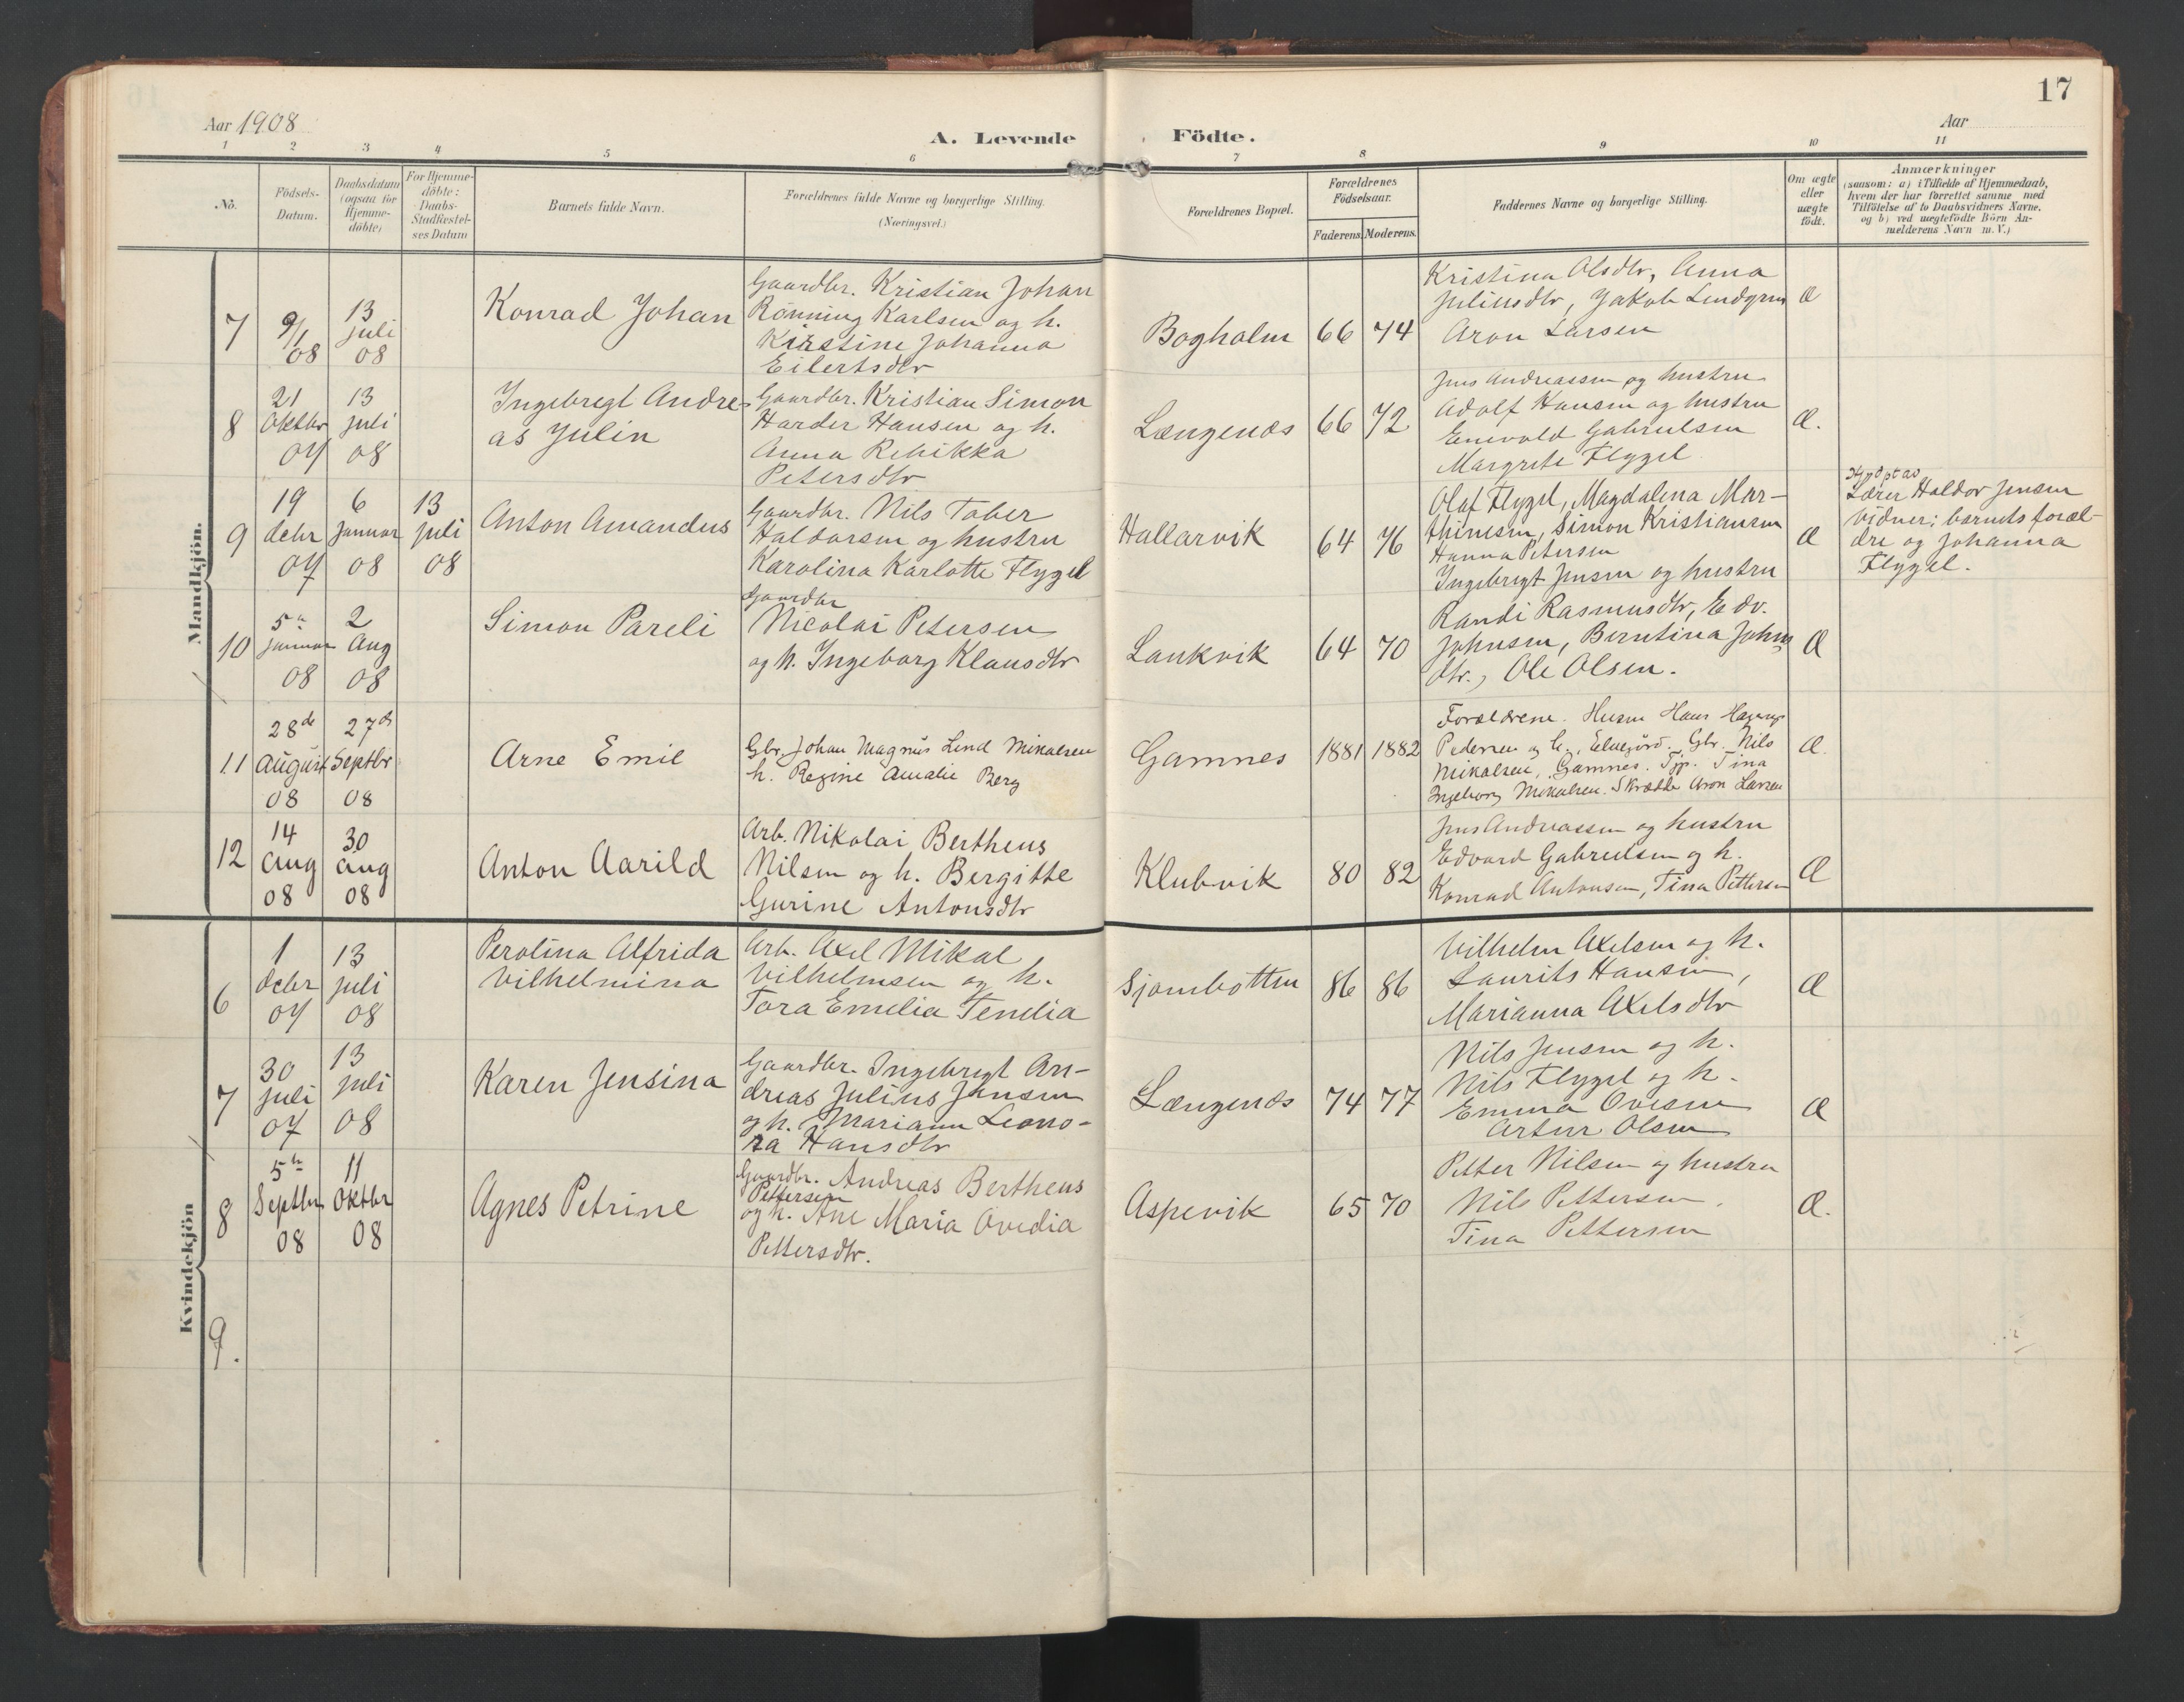 17
Aar 1908
A. Levende Födte.
Aar
1 2 3 4 5 6 7 8 9 10 11
No.
Födsels-
Datum.
Daabsdatum
(ogsaa for
Hjemme-
döbte)
For Hjemme-
döbte:
Daabs-
Stadfæstel-
ses Datum
Barnets fulde Navn.
Forældrenes fulde Navne og borgerlige Stilling.
(Næringsvei.)
Forældrenes Bopæl.
Forældrenes
Födselsaar.
Faderens. Moderens.
Faddernes Navne og borgerlige Stilling.
Om ægte
eller
uægte
födt.
Anmærkninger
(saasom: a) i Tilfælde af Hjemmedaab,
hvem der har forrettet samme med
Tilföielse af to Daabsvidners Navne,
og b) ved uægtefödte Börn An-
melderens Navn m. V.)
Mandkjön.
7
9/1
08
13
juli
08
Konrad Johan
Gaardbr. Kristian Johan
Rönning Karlsen og h.
Kristine Johanna
Eilertsdtr
Bogholm
66
74
Kristina Olsdtr, Anna
Juliusdtr, Jakob Lindgren
Aron Larsen
Æ
8
21
Oktbr
07
13
juli
08
Ingebregt Andre-
as Julin
Gaardbr. Kristian Simon
Harder Hansen og h.
Anna Rebikka
Petersdtr
Længenes
66
72
Jens Andreassen og hustru
Adolf Hansen og hustru
Enevold Gabrielsen
Margrete Flygel
Æ.
9
19
decbr
07
6
Januar
08
13
juli
08
Anton Amandus
Gaardbr. Nils Tober
Haldorsen og hustru
Karolina Karlotte Flygel
Hallarvik
64
76
Olaf Flygel, Magdalena Mar-
thinsen, Simon Kristiansen
Hanna Petersen
Ingebrigt Jensen og hustru
Æ
Hjdpt av
Lærer Haldor Jensen
Vidner; barnets foræl-
dre og Johanna
Flygel.
10
5te
januar
08
2
Aug
08
Simon Pareli
Gaardbr
Nicolai Petersen
og h. Ingeborg Klausdtr
Laukvik
64
70
Randi Rasmusdtr, Edv.
Johnsen, Berntina Johns
dtr., Ole Olsen.
Æ
11
28de
August
08
27de
Septbr
08
Arne Emil
Gbr. Johan Magnus Lind Mikalsen
h. Regine Amalie Berg
Gamnes
1881
1882
Forældrene. Husm Hans Hagerup
Pedersen og h., Gbr. Nils
Mikalsen, Gamnes. Tjp. Tina
Ingeborg Mikalsen. Skrædder Aron Larsen
Æ.
12
14
Aug
08
30
Aug
08
Anton Aarild
Arb. Nikolai Bertheus
Nilsen og h. Bergitte
Gurine Antonsdtr
Klubvik
80
82
Jens Andreassen og hustru
Edvard Gabrielsen og h.
Konrad Antonsen, Tina Pettersen
Æ
Kvindekjön
6
1
decbr
07
13
juli
08
Perolina Alfrida
Vilhelmina
Arb. Axel Mikal
Vilhelmsen og h.
Tora Emelia Tenelia
Sjombotten
86
86
Vilhelm Axelsen og h.
Laurits Hansen,
Marianna Axelsdtr
Æ
7
30
juli
07
13
juli
08
Karen Jensina
Gaardbr. Ingebregt An-
dreas Julius Jensen
og h. Mariann Leono-
ra Hansdtr
Længenes
74
77
Nils Jensen og h.
Nils Flygel og h.
Emma Ovesen
Artur Olsen
Æ
8
5te
Septbr
08
11
Oktbr
08
Agnes Petrine
Gaardbr. Andreas Bertheus
Pettersen
og h. Ane Maria Ovedia
Pettersdtr.
Aspevik
65
70
Petter Nilsen og hustru
Nils Pettersen.
Tina Pettersen
Æ.
9.